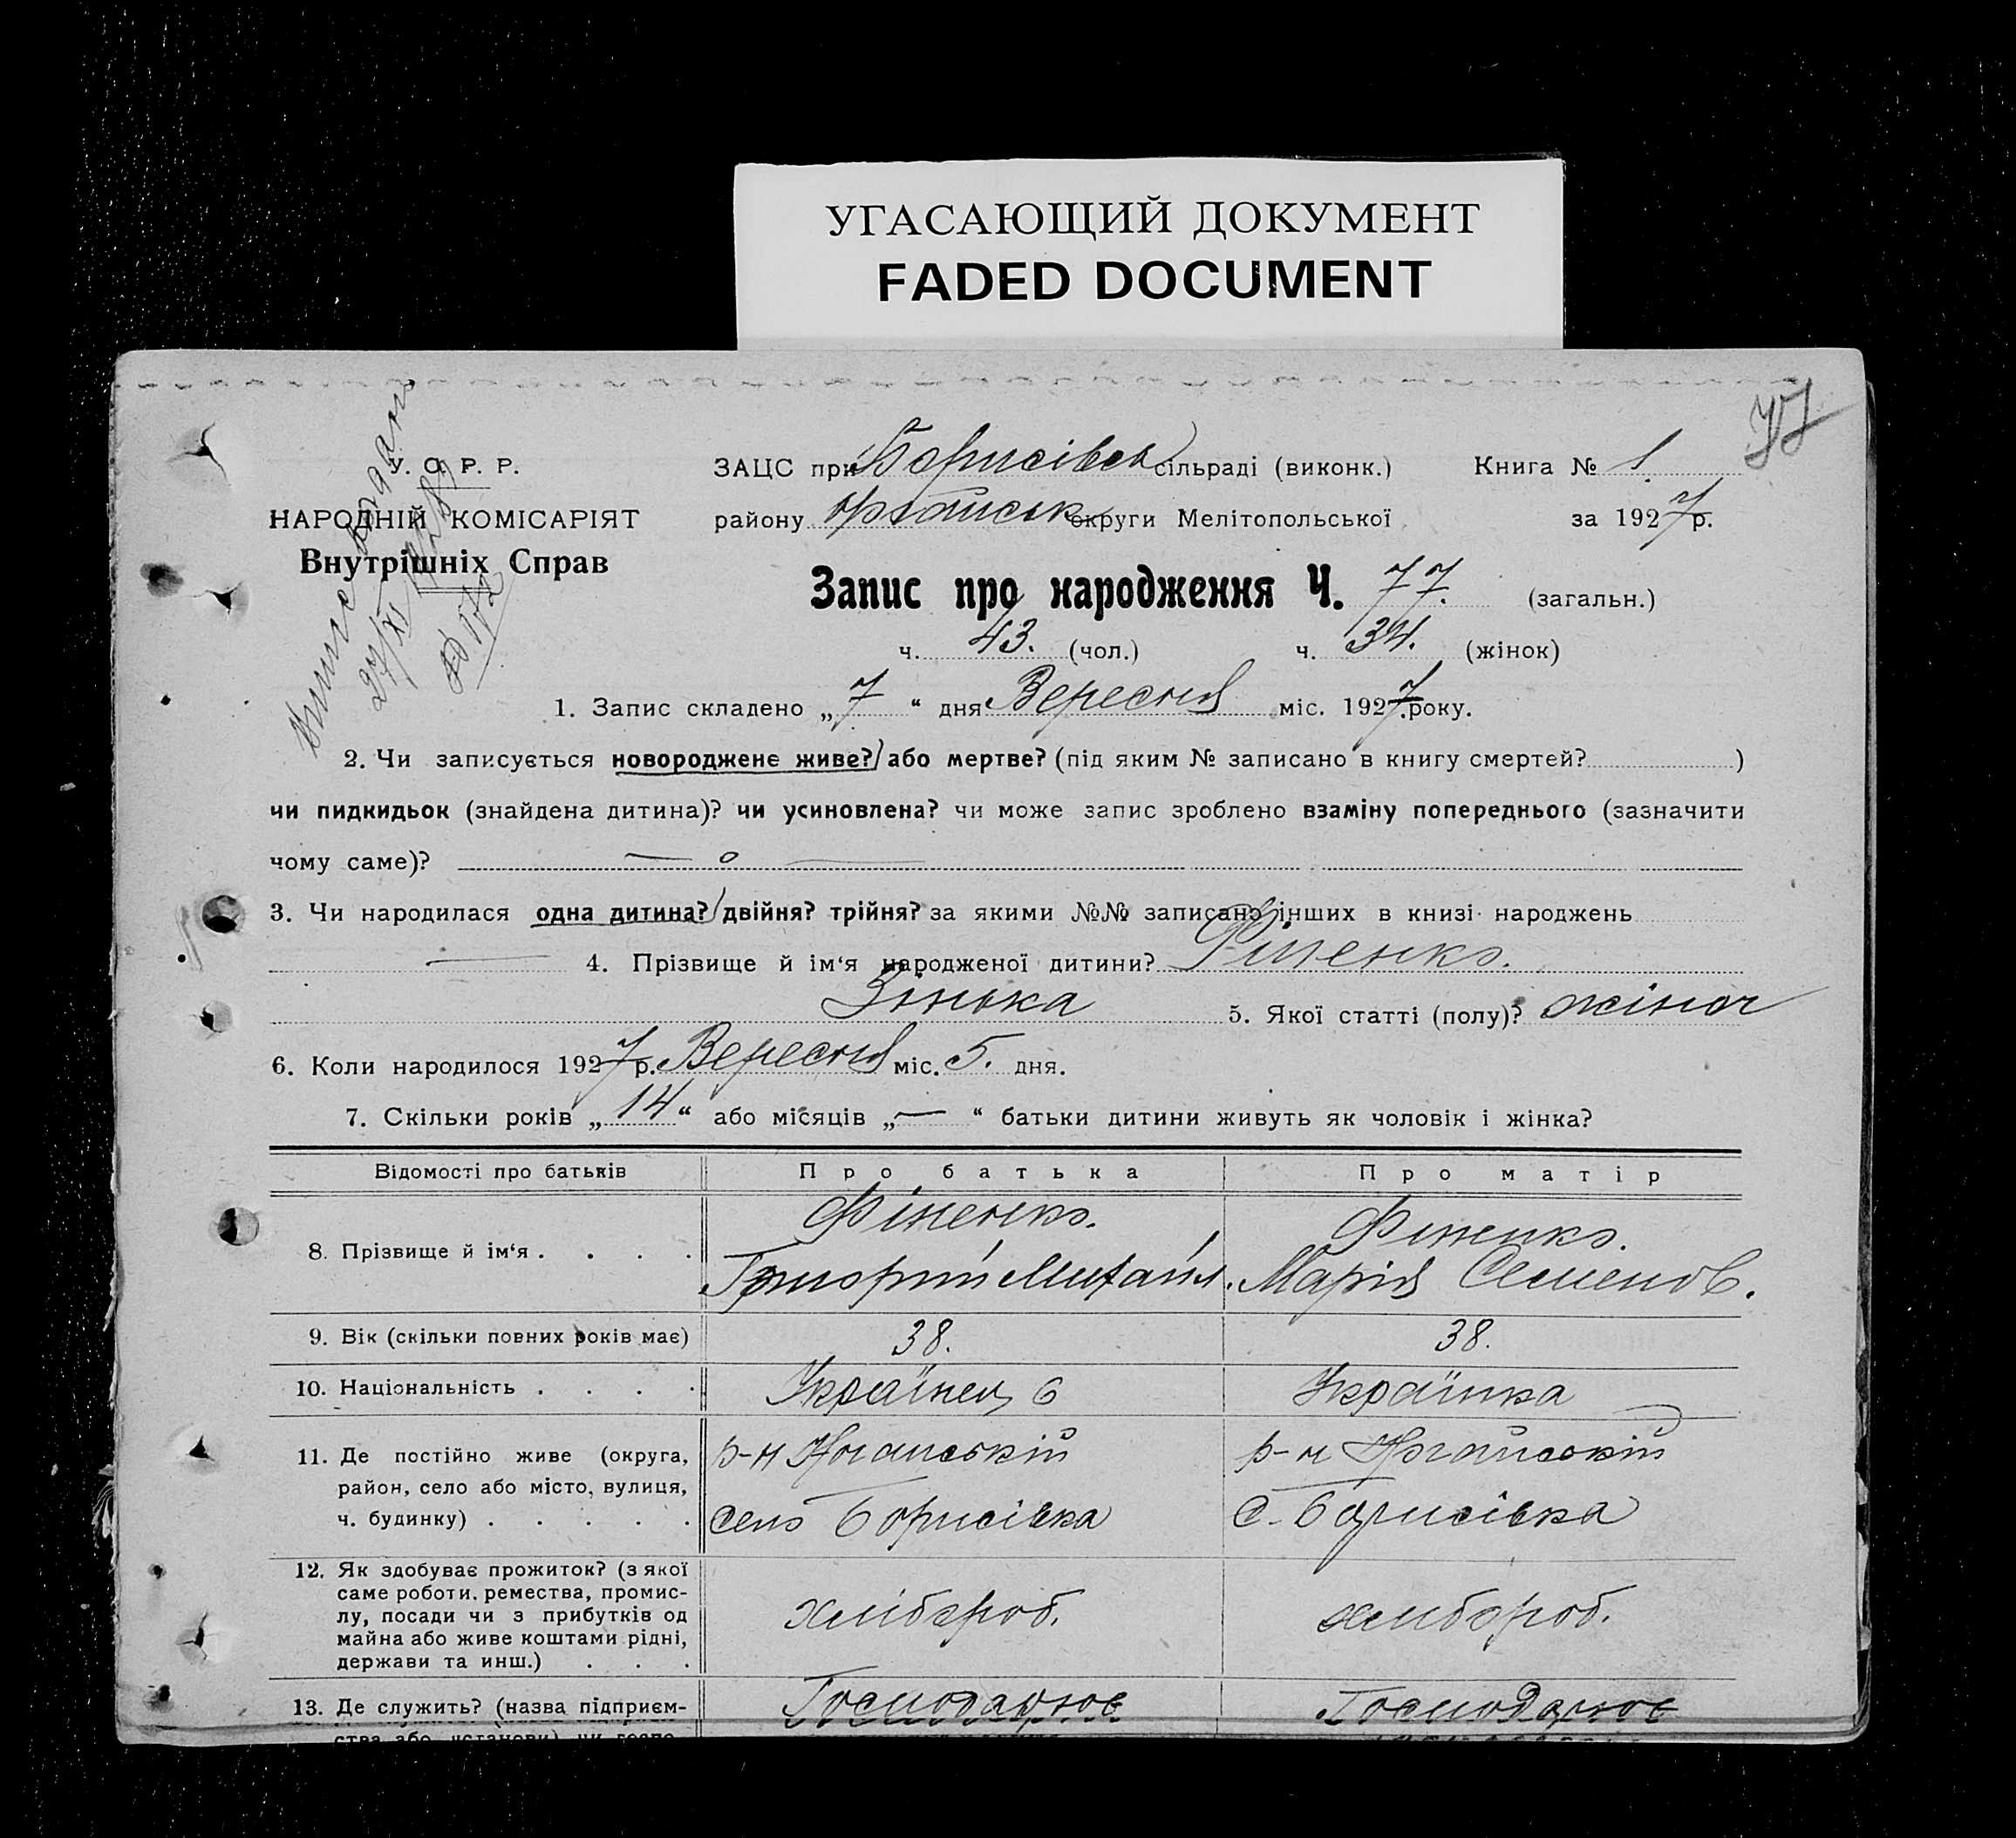 УГАСАЮЩИЙ ДОКУМЕНТ
FADED DOCUMENT
77
У. С. Р. Р.
НАРОДНІЙ КОМІСАРІЯТ
Внутрішніх Справ
ЗАЦС при Борисівськ сільраді (виконк.) Книга № 1.
району округи Мелітопольської за 1927 р.
Запис про народження Ч. 77. (загальн.)
ч. 43. (чол.) ч. 34. (жінок)
1. Запис складено „ 7 “ дня Вересня міс. 1927. року.
2. Чи записується новороджене живе? або мертве? (під яким № записано в книгу смертей? )
чи пидкидьок (знайдена дитина)? чи усиновлена? чи може запис зроблено взаміну попереднього (зазначити
чому саме)? — о —
3. Чи народилася одна дитина? двійня? трійня? за якими №№ записано інших в книзі народжень
— 4. Прізвище й ім‘я народженої дитини? Фіненко.
Зінька 5. Якої статті (полу)? жіноч
6. Коли народилося 1927 р. Вересня міс. 5. дня.
7. Скільки років „ 14 “ або місяців „ — “ батьки дитини живуть як чоловік і жінка?
Відомості про батьків Про батька Про матір
8. Прізвище й ім‘я . . . . Фіненко. Фіненко.
Григорій Михайл. Марія Семенов.
9. Вік (скільки повних років має) 38. 38.
10. Національність . . . . Українец Українка
11. Де постійно живе (округа, р-н Ногайській р-н Ногайській
район, село або місто, вулиця,
ч. будинку) . . . . . село Борисівка с. Борисівка
12. Як здобуває прожиток? (з якої
саме роботи, ремества, промис-
лу, посади чи з прибутків од хлібороб. хлібороб.
майна або живе коштами рідні,
держави та инш.) . . .
13. Де служить? (назва підприєм- Господарює Господарює
ства або установи) чи госпо-